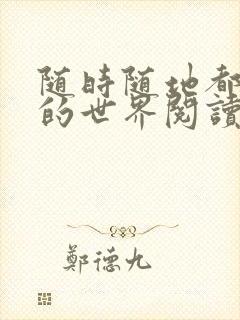 随時随地都
的世界閱讀
鄭德九